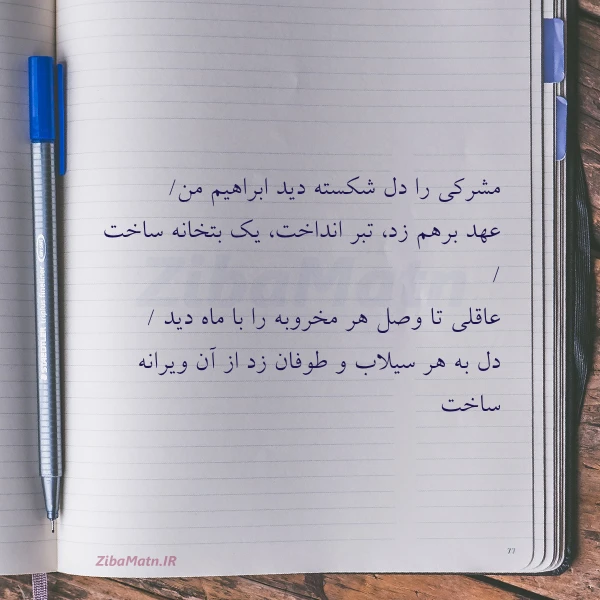 مشرکی را دل شکسته دید ابراهیم من/
عهد برهم زد، تبر انداخت، یک بتخانه ساخت
/
عاقلی تا وصل هر مخروبه را با ماه دید /
دل به هر سیلاب و طوفان زد از آن ویرانه
ساخت
ZibaMatn
77
ZibaMatn.IR